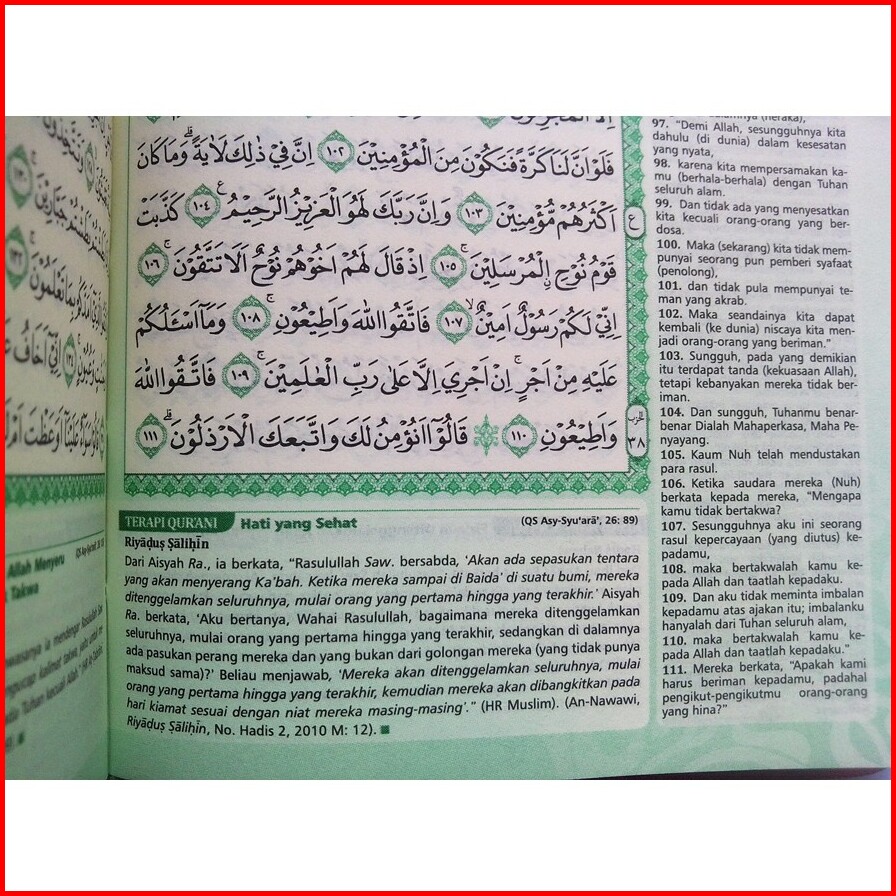 فَلَوْ اَنَّ لَنَا كَرَّةً فَنَكُوْنَ مِنَ الْمُؤْمِنِيْنَ ۝١٠٢ اِنَّ فِيْ ذٰلِكَ لَاٰيَةً ۗوَمَا كَانَ
اَكْثَرُهُمْ مُّؤْمِنِيْنَ ۝١٠٣ وَاِنَّ رَبَّكَ لَهُوَ الْعَزِيْزُ الرَّحِيْمُ ࣖ ۝١٠٤ كَذَّبَتْ
قَوْمُ نُوْحِ ِۨالْمُرْسَلِيْنَ ۚ ۝١٠٥ اِذْ قَالَ لَهُمْ اَخُوْهُمْ نُوْحٌ اَلَا تَتَّقُوْنَ ۚ ۝١٠٦
اِنِّيْ لَكُمْ رَسُوْلٌ اَمِيْنٌ ۙ ۝١٠٧ فَاتَّقُوا اللّٰهَ وَاَطِيْعُوْنِ ۚ ۝١٠٨ وَمَآ اَسْـَٔلُكُمْ
عَلَيْهِ مِنْ اَجْرٍ ۚاِنْ اَجْرِيَ اِلَّا عَلٰى رَبِّ الْعٰلَمِيْنَ ۚ ۝١٠٩ فَاتَّقُوا اللّٰهَ
وَاَطِيْعُوْنِ ۝١١٠ ۞ قَالُوْٓا اَنُؤْمِنُ لَكَ وَاتَّبَعَكَ الْاَرْذَلُوْنَ ۗ ۝١١١
ع
الحزب
٣٨
TERAPI QUR'ANI Hati yang Sehat (QS Asy-Syu'arā', 26: 89)
Riyāḍuṣ Ṣāliḥīn
Dari Aisyah Ra., ia berkata, “Rasulullah Saw. bersabda, ‘Akan ada sepasukan tentara
yang akan menyerang Ka'bah. Ketika mereka sampai di Baida' di suatu bumi, mereka
ditenggelamkan seluruhnya, mulai orang yang pertama hingga yang terakhir.’ Aisyah
Ra. berkata, ‘Aku bertanya, Wahai Rasulullah, bagaimana mereka ditenggelamkan
seluruhnya, mulai orang yang pertama hingga yang terakhir, sedangkan di dalamnya
ada pasukan perang mereka dan yang bukan dari golongan mereka (yang tidak punya
maksud sama)?’ Beliau menjawab, ‘Mereka akan ditenggelamkan seluruhnya, mulai
orang yang pertama hingga yang terakhir, kemudian mereka akan dibangkitkan pada
hari kiamat sesuai dengan niat mereka masing-masing’.” (HR Muslim). (An-Nawawi,
Riyāḍuṣ Ṣāliḥīn, No. Hadis 2, 2010 M: 12).
97. “Demi Allah, sesungguhnya kita
dahulu (di dunia) dalam kesesatan
yang nyata,
98. karena kita mempersamakan ka-
mu (berhala-berhala) dengan Tuhan
seluruh alam.
99. Dan tidak ada yang menyesatkan
kita kecuali orang-orang yang ber-
dosa.
100. Maka (sekarang) kita tidak mem-
punyai seorang pun pemberi syafaat
(penolong),
101. dan tidak pula mempunyai te-
man yang akrab.
102. Maka seandainya kita dapat
kembali (ke dunia) niscaya kita men-
jadi orang-orang yang beriman.”
103. Sungguh, pada yang demikian
itu terdapat tanda (kekuasaan Allah),
tetapi kebanyakan mereka tidak ber-
iman.
104. Dan sungguh, Tuhanmu benar-
benar Dialah Mahaperkasa, Maha Pe-
nyayang.
105. Kaum Nuh telah mendustakan
para rasul.
106. Ketika saudara mereka (Nuh)
berkata kepada mereka, “Mengapa
kamu tidak bertakwa?
107. Sesungguhnya aku ini seorang
rasul kepercayaan (yang diutus) ke-
padamu,
108. maka bertakwalah kamu ke-
pada Allah dan taatlah kepadaku.
109. Dan aku tidak meminta imbalan
kepadamu atas ajakan itu; imbalanku
hanyalah dari Tuhan seluruh alam,
110. maka bertakwalah kamu ke-
pada Allah dan taatlah kepadaku.”
111. Mereka berkata, “Apakah kami
harus beriman kepadamu, padahal
pengikut-pengikutmu orang-orang
yang hina?”
Allah Menyeru
Takwa